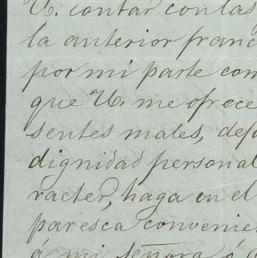 V. contar con las
la anterior franc
por mi parte con
que V. me ofrece
sentes males, dep
dignidad personal
racter, haga en el
paresca convenie
á mi señora ó